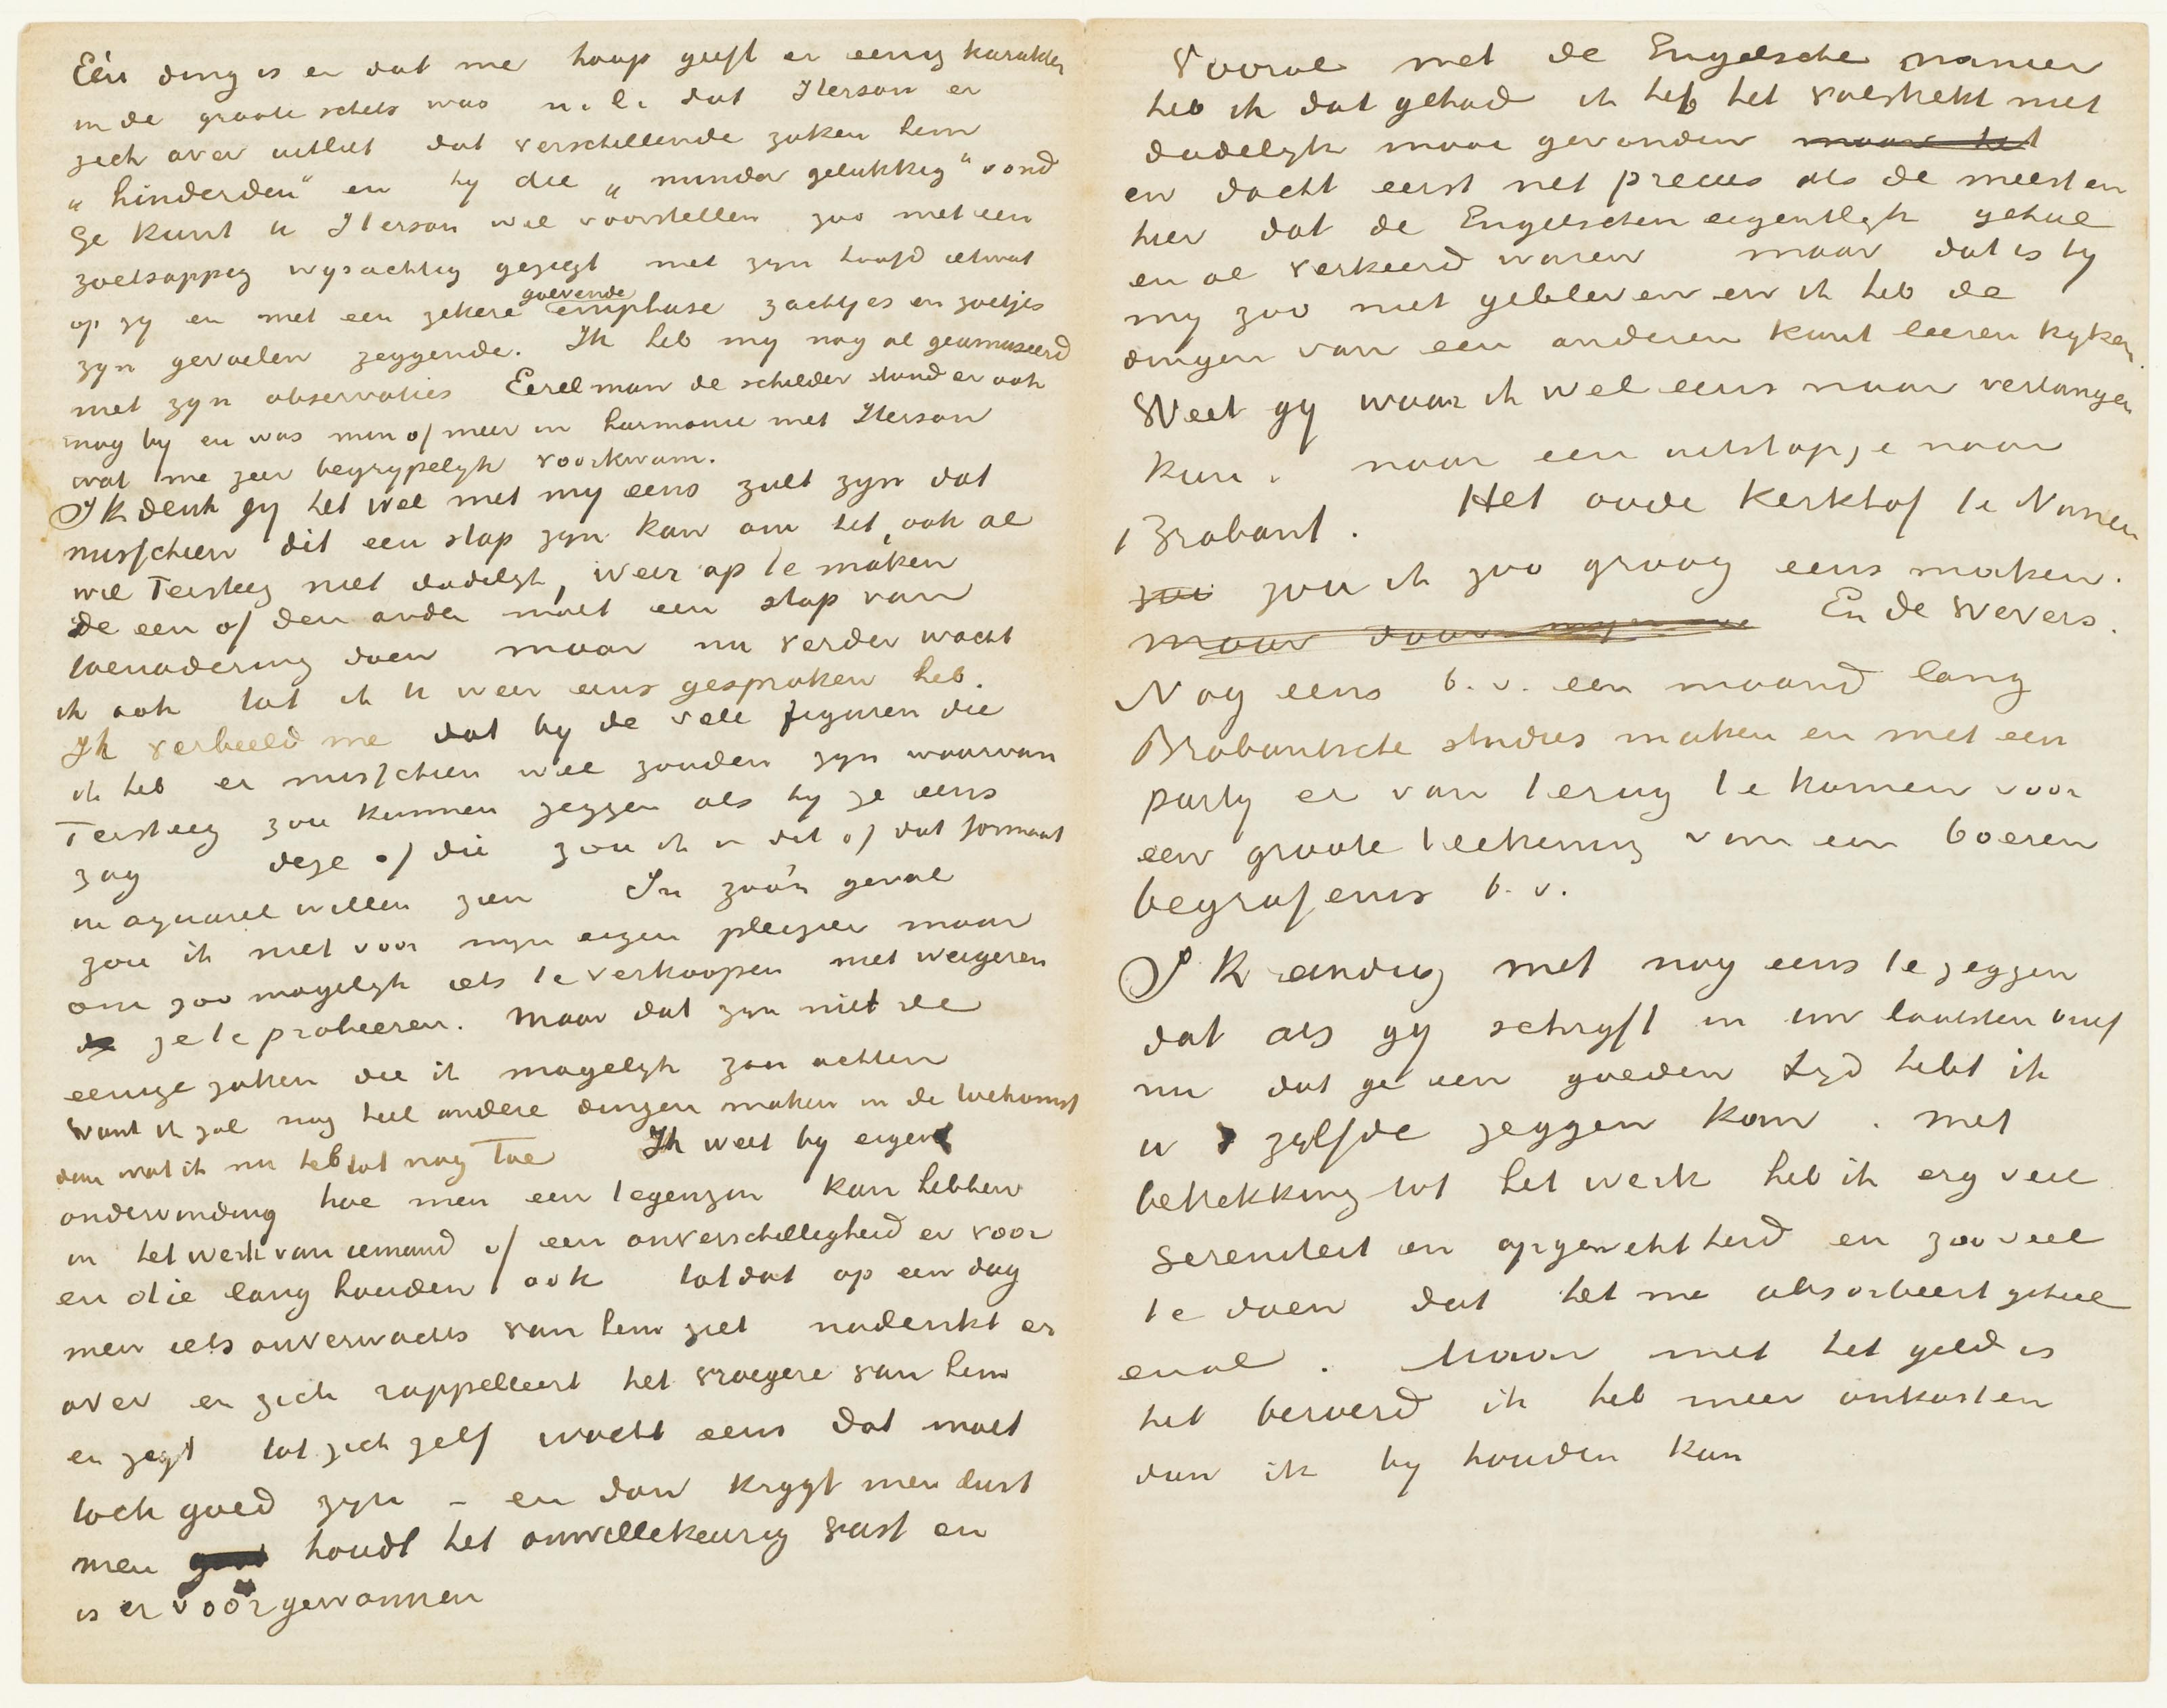 Eén ding is er dat me hoop geeft er eenig karakter
in de groote schets was n.l. dat Iterson er
zich over uitliet dat verschillende zaken hem
„hinderden” en hy die „minder gelukkig” vond
Ge kunt u Iterson wel voorstellen zoo met een
zoetsappig wysachtig gezigt met zyn hoofd ietwat
op zy en met een zekere golvende emphase zachtjes en zoetjes
zyn gevoelen zeggende. Ik heb my nog al geamuseerd
met zyn observaties Eerelman de schilder stond er ook
nog by en was min of meer in harmonie met Iterson
wat me zeer begrypelyk voorkwam.
Ik denk gy het wel met my eens zult zyn dat
misschien dit een stap zyn kan om het, ook al
wil Tersteeg niet dadelyk, weer op te maken
de een of den ander moet een stap van
toenadering doen maar nu verder wacht
ik ook tot ik U weer eens gesproken heb.
Ik verbeeld me dat by de vele figuren die
ik heb er misschien wel zouden zyn waarvan
Tersteeg zou kunnen zeggen als hy ze eens
zag deze of die zou ik in dit of dat formaat
in aquarel willen zien In zoo'n geval
zou ik niet voor myn eigen pleizier maar
om zoo mogelyk iets te verkoopen niet weigeren
ze te probeeren. Maar dat zyn niet de
eenige zaken die ik mogelyk zou achten
want ik zal nog heel andere dingen maken in de toekomst
dan wat ik nu heb tot nog toe Ik weet by eigen
ondervinding hoe men een tegenzin kan hebben
in het werk van iemand of een onverschilligheid er voor
en die lang houden ook totdat op een dag
men iets onverwachts van hem ziet nadenkt er
over en zich rappelleert het vroegere van hem
en zegt tot zich zelf wacht eens dat moet
toch goed zyn – en dan krygt men lust
men houdt het onwillekeurig vast en
is er vóór gewonnen
Vooral met de Engelsche manier
heb ik dat gehad ik heb het volstrekt niet
dadelyk mooi gevonden maar het
en dacht eerst net precies als de meesten
hier dat de Engelschen eigentlyk geheel
en al verkeerd waren maar dat is by
my zoo niet gebleven en ik heb de
dingen van een anderen kant leeren kyken.
Weet gy waar ik wel eens naar verlangen
kan, naar een uitstapje naar
Brabant. Het oude kerkhof te Nunen
zou zou ik zoo graag eens maken.
maar daar En de wevers.
Nog eens b.v. een maand lang
Brabantsche studies maken en met een
party er van terug te komen voor
een groote teekening van een boeren
begrafenis b.v.
Ik eindig met nog eens te zeggen
dat als gy schryft in uw laatsten brief
nu dat ge een goeden tyd hebt ik
u 't zelfde zeggen kan. met
betrekking tot het werk heb ik erg veel
sereniteit en opgewektheid en zoo veel
te doen dat het me absorbeert geheel
en al. Maar met het geld is
het beroerd ik heb meer onkosten
dan ik by houden kan